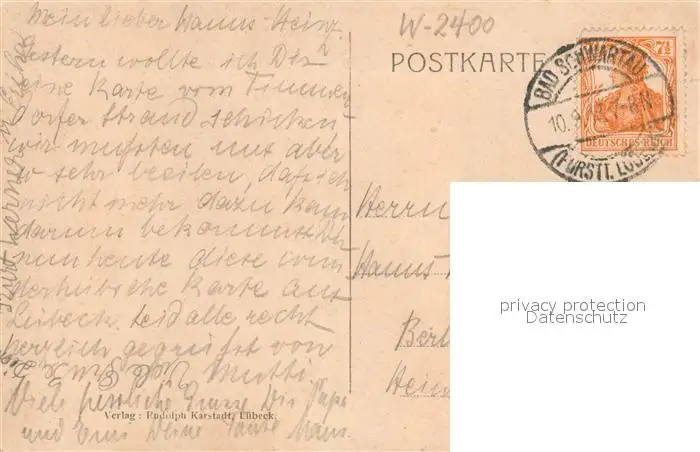 Mein lieber Hanns-Heinz
Gestern wollte ich Dir
eine Karte vom Timmen-
dorfer Strand schicken
wir mußten uns aber
so sehr beeilen, daß ich
nicht mehr dazu kam
darum bekommst Du
nun heute diese wun-
derhübsche Karte aus
Lübeck. Seid alle recht
herzlich gegrüßt von
Mutti
Viele herzliche Grüsse Dir Papa
und Deine Tante
Verlag: Rudolph Karstadt, Lübeck.
W-2400
POSTKARTE
7½
DEUTSCHES REICH
BAD SCHWARTAU
10.9.
(FÜRSTT. LÜB.)
Herrn
Hanns
Berl
privacy protection
Datenschutz